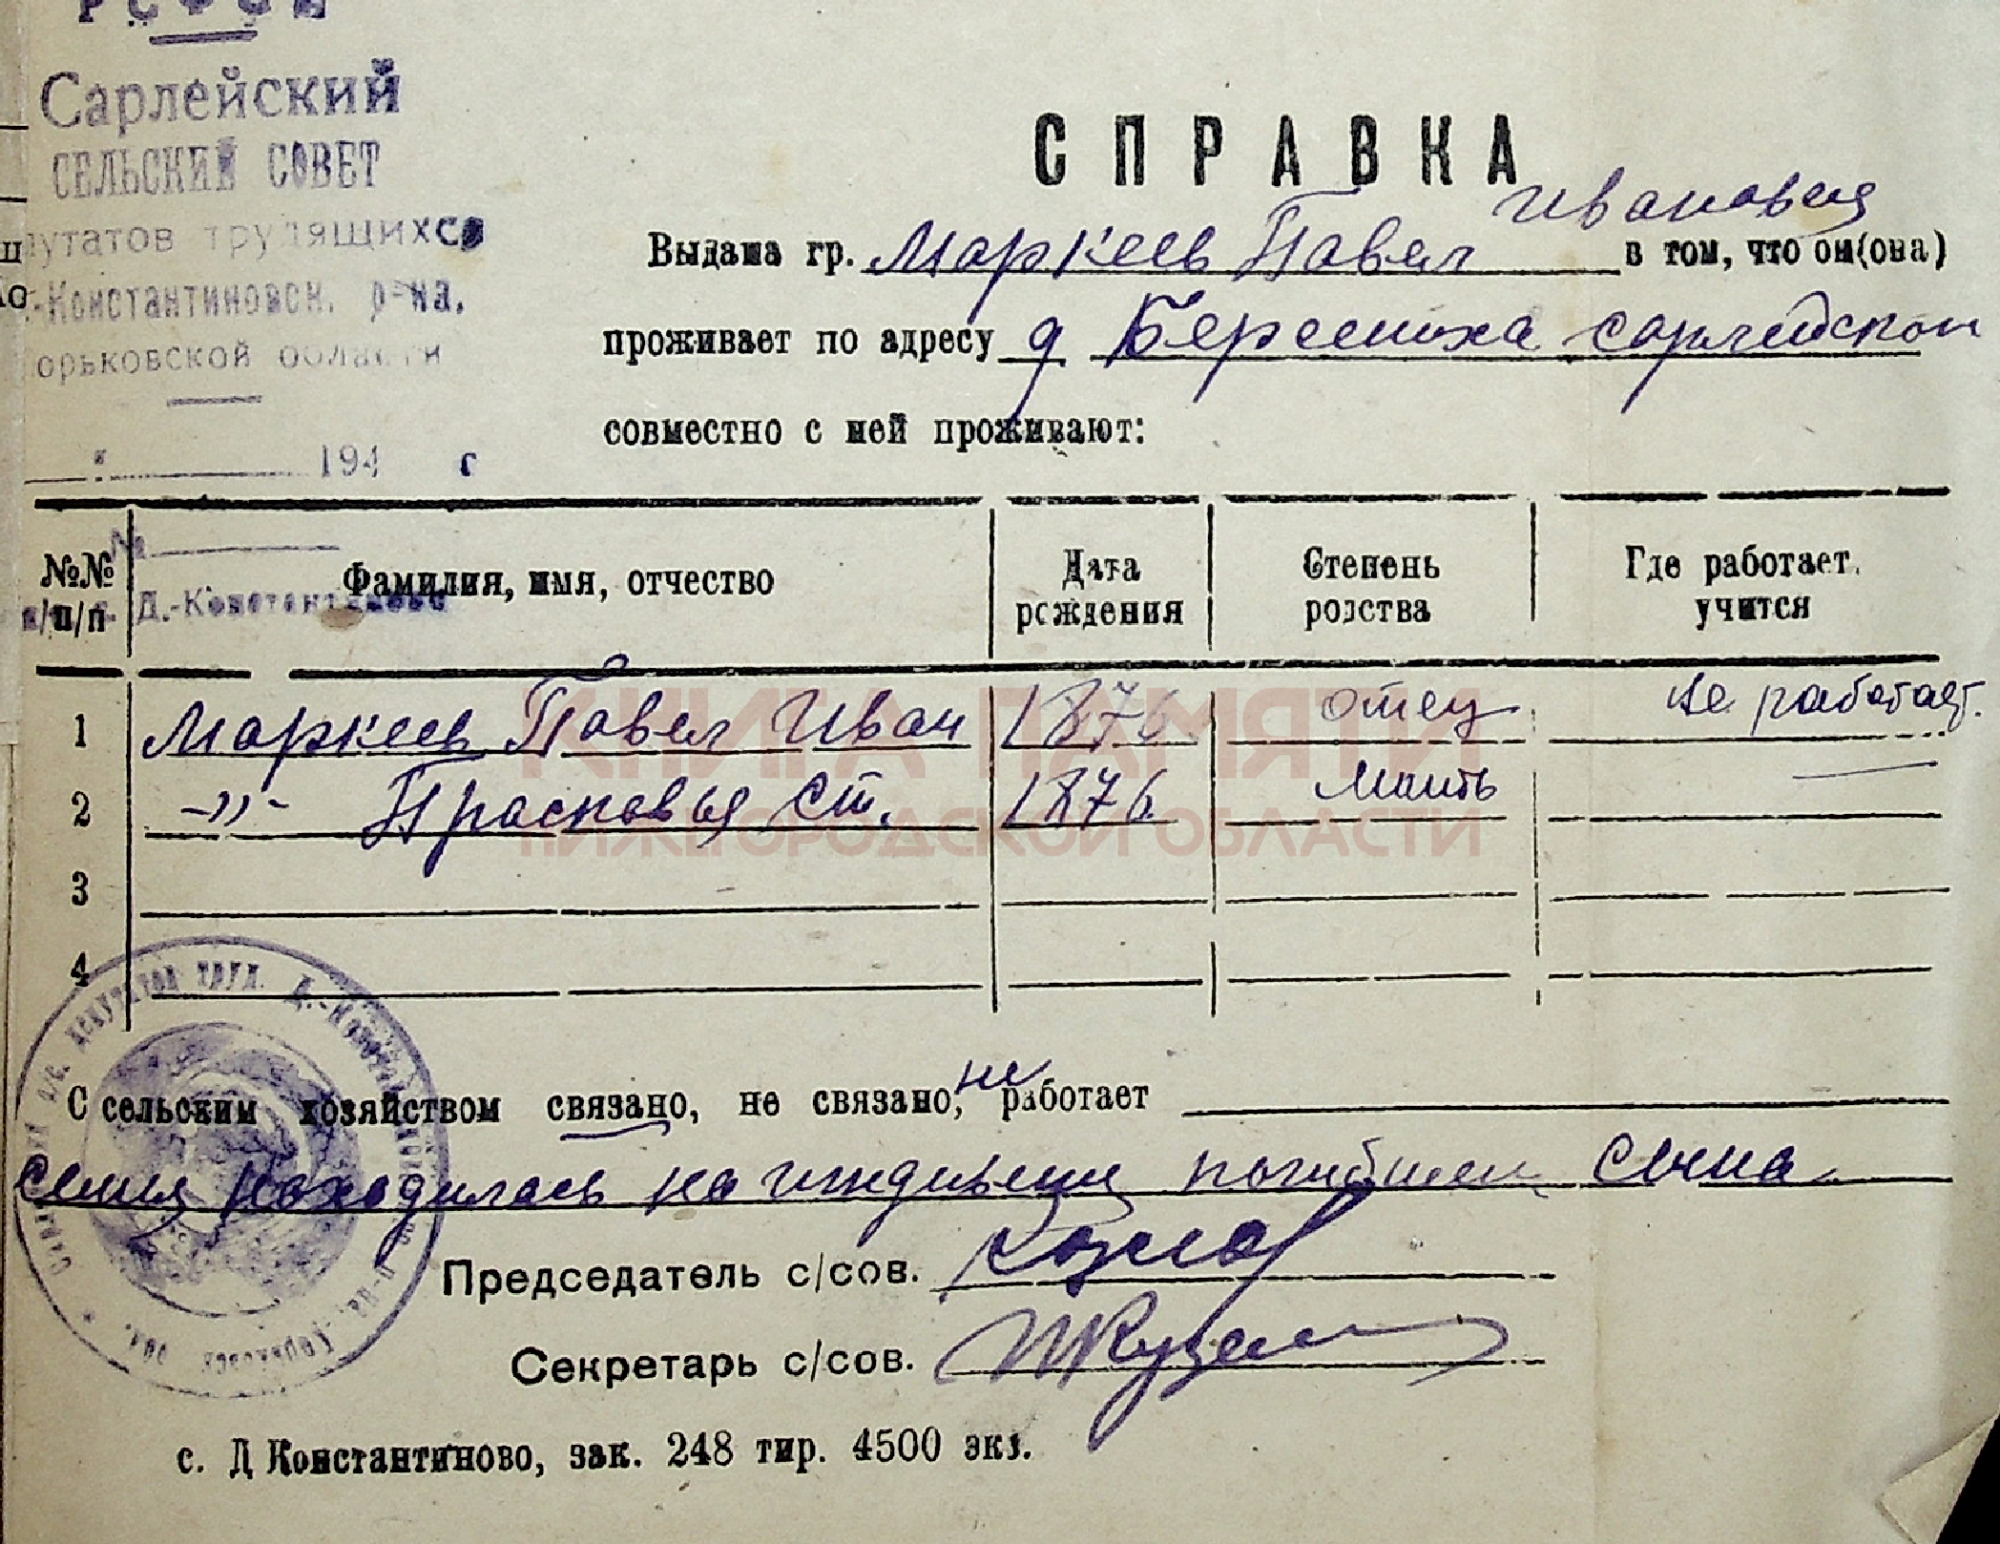 РСФСР
Сарлейский
СЕЛЬСКИЙ СОВЕТ
путатов трудящихся
.-Константиновск. р-на,
орьковской области
194 г
№
Д.-Константиново
СПРАВКА
Выдана гр. Маркеев Павел Иванович в том, что он(она)
проживает по адресу д Березниха Сарлейской
совместно с ней проживают:
№№ п/п Фамилия, имя, отчество Дата рождения Степень родства Где работает, учится
1 Маркеев Павел Иван 1876 отец не работает.
2 -"- Прасковья Ст. 1876 Мать —
3
4
КНИГА ПАМЯТИ
НИЖЕГОРОДСКОЙ ОБЛАСТИ
С сельским хозяйством связано, не связано, не работает
семья находилась на иждивении погибшего сына
Председатель с/сов. Козлов
Секретарь с/сов.
с. Д Константиново, зак. 248 тир. 4500 экз.